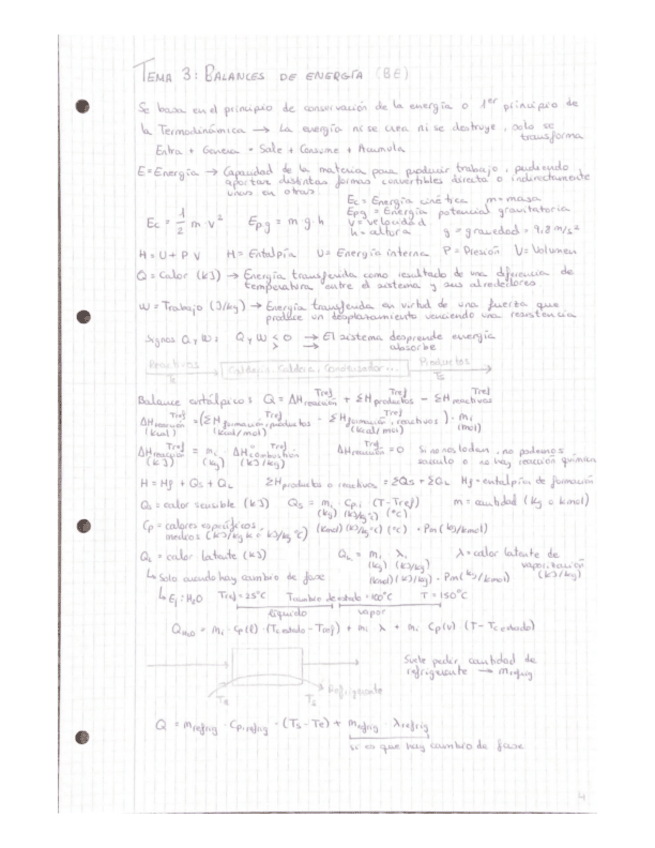 TEMA 3: BALANCES DE ENERGÍA (BE)
Se basa en el principio de conservación de la energía o 1er principio de
la Termodinámica → La energía ni se crea ni se destruye, solo se
transforma
Entra + Genera = Sale + Consume + Acumula
E = Energía → Capacidad de la materia para producir trabajo, pudiendo
aportar distintas formas convertibles directa o indirectamente
unas en otras.
Ec = Energía cinética m = masa
Epg = Energía potencial gravitatoria
Ec = 1/2 m · v² Epg = m · g · h
v = velocidad
h = altura g = gravedad = 9,8 m/s²
H = U + P V H = Entalpía U = Energía interna P = Presión V = Volumen
Q = Calor (kJ) → Energía transferida como resultado de una diferencia de
temperatura entre el sistema y sus alrededores
W = Trabajo (J/kg) → Energía transferida en virtud de una fuerza que
produce un desplazamiento venciendo una resistencia
Signos Q y W: Q y W < 0 → El sistema desprende energía
> → absorbe
Reactivos Caldería, Caldera, Condensador... Productos
Te Ts
Balance entálpico: Q = ΔH reacción Tref + ΣH productos Tref − ΣH reactivos Tref
ΔH reacción Tref = (ΣH formación, productos Tref − ΣH formación, reactivos Tref) · mi
(kcal) (kcal/mol) (kcal/mol) (mol)
ΔH reacción Tref = mi · ΔH combustión Tref ΔH reacción Tref = 0 Si no nos lo dan, no podemos
(kJ) (kg) (kJ/kg) sacarlo o no hay reacción química
H = Hf + Qs + QL ΣH productos o reactivos = ΣQs + ΣQL Hf = entalpías de formación
Qs = calor sensible (kJ) Qs = mi · Cpi · (T − Tref) m = cantidad (kg o kmol)
(kg) (kJ/kg°C) (°C)
Cp = calores específicos
medios (kJ/kg K = kJ/kg °C) (kmol) (kJ/kg°C) (°C) · Pm (kg/kmol)
QL = calor latente (kJ) QL = mi λi λ = calor latente de
(kg) (kJ/kg) vaporización
↳ Solo cuando hay cambio de fase (kmol) (kJ/kg) · Pm (kg/kmol) (kJ/kg)
↳ Ej: H2O Tref = 25°C Tcambio de estado = 100°C T = 150°C
líquido vapor
QH2O = mi · Cp(l) · (Tc estado − Tref) + mi λ + mi Cp(v) (T − Tc estado)
Suele pedir cantidad de
refrigerante → m refrig
Te Ts Refrigerante
Q = m refrig · Cp refrig · (Ts − Te) + m refrig · λ refrig
si es que hay cambio de fase
4